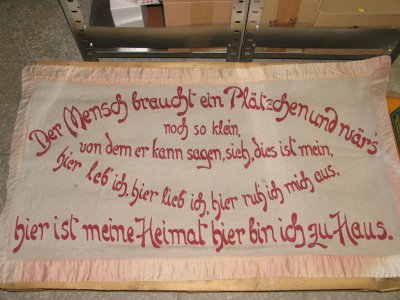 Der Mensch braucht ein Plätzchen und wär's
noch so klein,
von dem er kann sagen, sieh, dies ist mein,
hier leb' ich, hier lieb ich, hier ruh ich mich aus,
hier ist meine Heimat hier bin ich zu Haus.